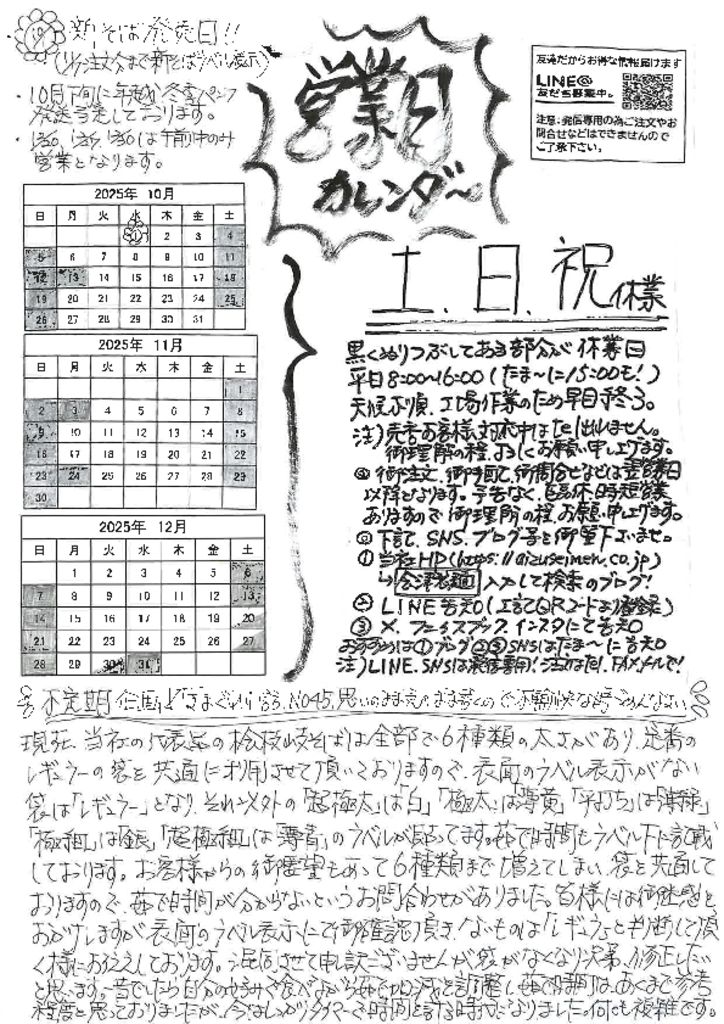 新そば発売日!!
(1ヶ注文分まで新そばラベル表示)
・10月下旬に年越、冬季ペンフ
発送予定しております。
・は午前中のみ
営業となります。
営業日
カレンダ～
友達だからお得な情報届けます
LINE@
友だち募集中。
注意:発信専用の為ご注文やお
問合せなどはできませんので
ご了承下さい。
2025年 10月
日 月 火 水 木 金 土
1 2 3 4
5 6 7 8 9 10 11
12 13 14 15 16 17 18
19 20 21 22 23 24 25
26 27 28 29 30 31
2025年 11月
日 月 火 水 木 金 土
1
2 3 4 5 6 7 8
9 10 11 12 13 14 15
16 17 18 19 20 21 22
23 24 25 26 27 28 29
30
2025年 12月
日 月 火 水 木 金 土
1 2 3 4 5 6
7 8 9 10 11 12 13
14 15 16 17 18 19 20
21 22 23 24 25 26 27
28 29 30 31
土、日、祝 休業
黒くぬりつぶしてある部分が休業日
平日8:00～16:00(たま～に15:00も!)
天候不順、工場作業のため早目終了。
注)売店お客様対応中はtel出れません。
御理解の程、よろしくお願い申し上げます。
◎御注文、御手配、御問合せなどは翌営業日
以降となります。予告なく、臨休、時短営業
ありますので御理解の程、お願い申し上げます。
◎下記、SNS、ブログ等を御覧下さいませ。
①当社HP(https://aizuseimen.co.jp)
↳会津製麺 入力して検索のブログ!
②LINE告知(上記QRコードより登録)
③X、フェイスブック、インスタにて告知
おすすめは①ブログ②③SNSはたま～に告知
注)LINE、SNSは発信専用!ご注文はtel、FAX、メールで!
不定期企画 どさまぐれ 言 No45、思いのまま 書くので不愉快な時ごめんなさい
現在、当社の代表品の桧枝岐そばは全部で6種類の太さがあり、定番の
レギュラーの袋を共通に利用させて頂いておりますので、表面のラベル表示がない
袋は「レギュラー」となり、それ以外の「超極太」は「白」「極太」は「薄黄」「平打ち」は「薄緑」
「極細」は「銀」「超極細」は「薄青」のラベルが貼ってます。茹で時間もラベル下に記載
しております。お客様からの御要望もあって6種類まで増えてしまい、袋を共通して
おりますので、茹で時間が分からないというお問い合わせがありました。皆様には御迷惑を
おかけしますが表面のラベル表示にて御確認頂き、ないものは「レギュラー」と判断して頂
く様にお伝えしております。混同させて申訳ございませんが袋がなくなり次第、修正したい
と思います。昔でしたら自分の好みで食べながら茹で加減を調整し、茹で時間はあくまで参考
程度と思っておりましたが、今はしっかりタイマーで時間を計る時代になりました。何とも複雑です。